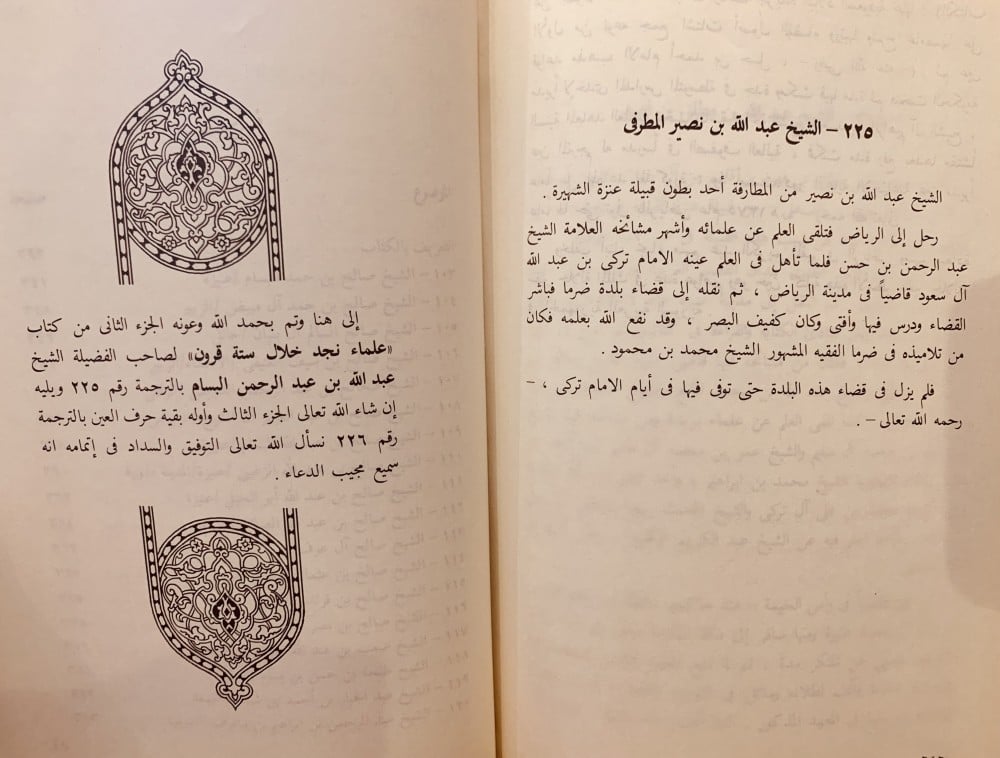 ٢٢٥ - الشيخ عبد الله بن نصير المطرفى
الشيخ عبد الله بن نصير من المطارفة أحد بطون قبيلة عنزة الشهيرة .
رحل إلى الرياض فتلقى العلم عن علمائه وأشهر مشائخه العلامة الشيخ
عبد الرحمن بن حسن فلما تأهل فى العلم عينه الامام تركى بن عبد الله
آل سعود قاضياً فى مدينة الرياض ، ثم نقله إلى قضاء بلدة ضرما فباشر
القضاء ودرس فيها وأفتى وكان كفيف البصر ، وقد نفع الله بعلمه فكان
من تلاميذه فى ضرما الفقيه المشهور الشيخ محمد بن محمود .
فلم يزل فى قضاء هذه البلدة حتى توفى فيها فى أيام الامام تركى ، -
رحمه الله تعالى - .
إلى هنا وتم بحمد الله وعونه الجزء الثانى من كتاب
«علماء نجد خلال ستة قرون» لصاحب الفضيلة الشيخ
عبد الله بن عبد الرحمن البسام بالترجمة رقم ٢٢٥ ويليه
إن شاء الله تعالى الجزء الثالث وأوله بقية حرف العين بالترجمة
رقم ٢٢٦ نسأل الله تعالى التوفيق والسداد فى إتمامه انه
سميع مجيب الدعاء .